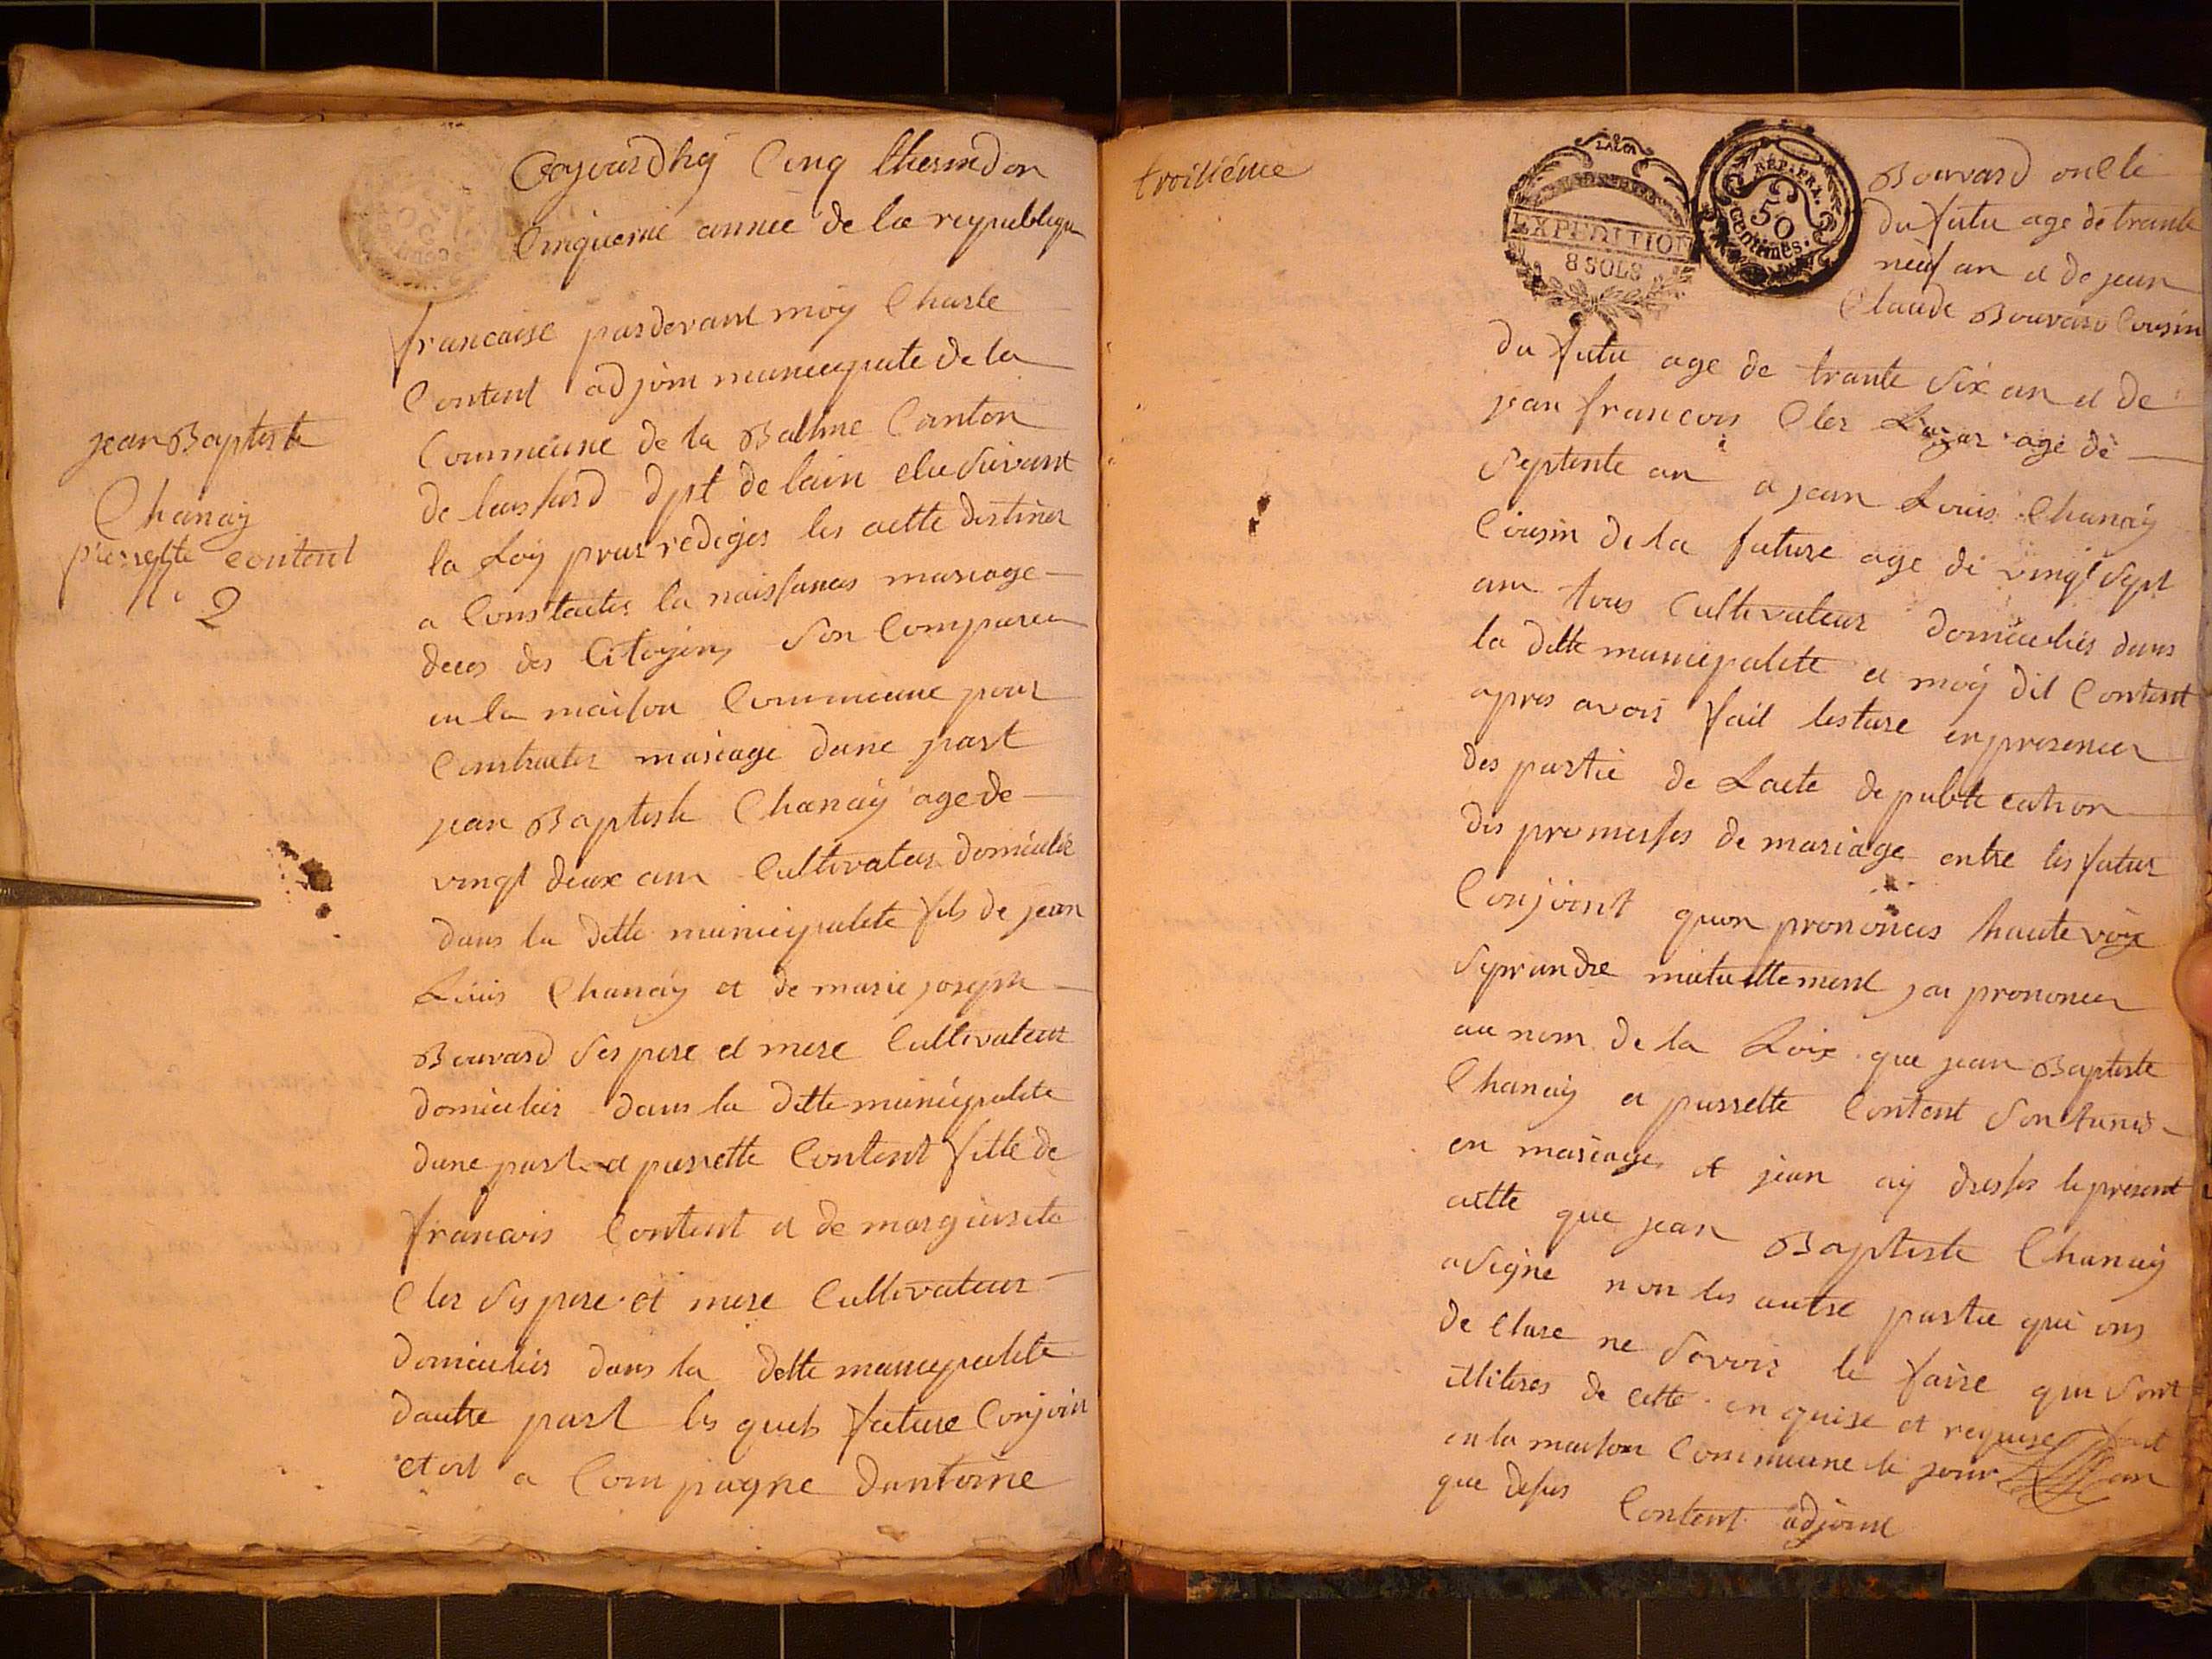 aujourdhuj Cinq thermidor
Cinquieme année de la republique
francaise pardevant moy Charle
Content adjoin municipale de la
Commeune de la Balme Canton
de dpt de lain elu suivant
la Loy pour rediger les actte destiner
a Constater la naissances mariage
deces des Citoyens son Comparu
en la maison Commeune pour
Contracter mariage dune part
jean Baptiste Chanay age de
vingt deux ans Cultivateur domicilié
dans la ditte municipalite fils de jean
Louis Chanay et de marie joseph
Bouvard ses pere et mere Cultivateur
domiciliés dans la ditte municipalite
dune part et pierrette Content fille de
francois Content et de margueritte
Cler ses pere et mere Cultivateur
domiciliés dans la ditte municipalite
dautre part les quels future Conjoin
etat a Compagne dantoine
jean Baptiste
Chanay
pierrette content
2
troisiéme
LA LOI
EXPEDITION
8 SOLS
RÉP. FRA.
50
centimes.
Bouvard oncle
du futu age de trante
neuf an et de jean
Claude Bouvard Cousin
du futu age de trante six an et de
jean francois Cler age de
septente an a jean Louis Chanay
Cousin de la future age de vingt sept
ans tous Cultivateur domiciliés dans
la ditte municipalite et moy dit Content
apres avoir fait lesture en presence
des partie de Lacte de publication
des promesses de mariage entre les futur
Conjoint quon prononces haute voix
se prandre mutuellement jai prononcer
au nom de la Loix que jean Baptiste
Chanay et pierrette Content sont unis
en mariage et jean ay dresser le present
actte que jean Baptiste Chanay
a signe non les autre partie qui ons
de Clare ne savoir le faire qui sont
illiteres de cette enquise et requise fait
en la maison Commeune le jour an
que desus Content adjoint